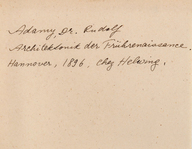 Adamy, Dr. Rudolf
Architektonik der Frührenaissance.
Hannover, 1896, chez Helwing.